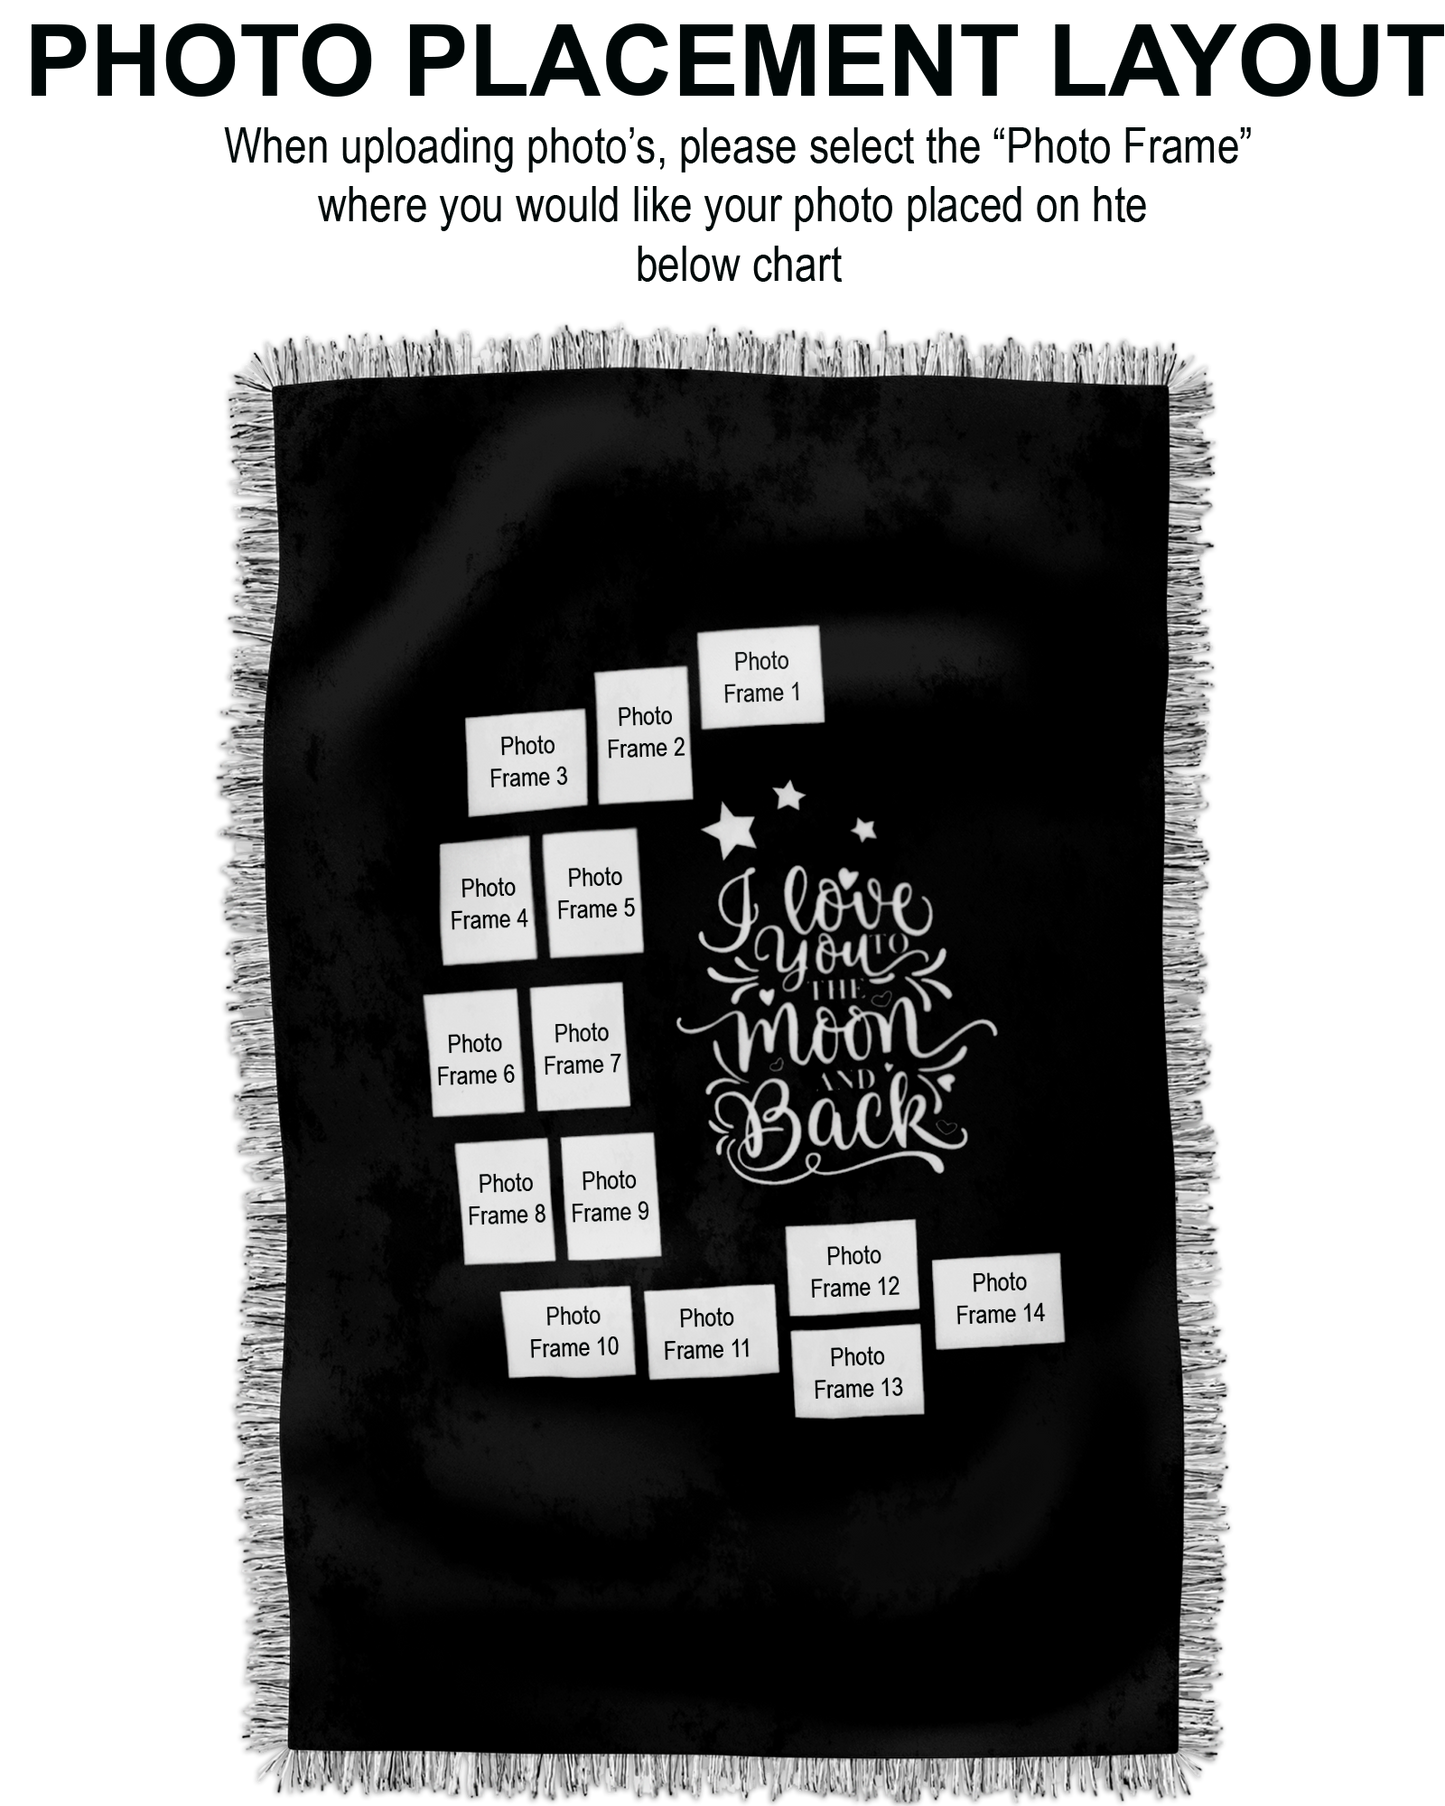 PHOTO PLACEMENT LAYOUT
When uploading photo’s, please select the “Photo Frame”
where you would like your photo placed on hte
below chart
Photo
Frame 1
Photo
Frame 2
Photo
Frame 3
Photo
Frame 4
Photo
Frame 5
I love
You TO
THE
Moon
AND
Back
Photo
Frame 6
Photo
Frame 7
Photo
Frame 8
Photo
Frame 9
Photo
Frame 10
Photo
Frame 11
Photo
Frame 12
Photo
Frame 13
Photo
Frame 14